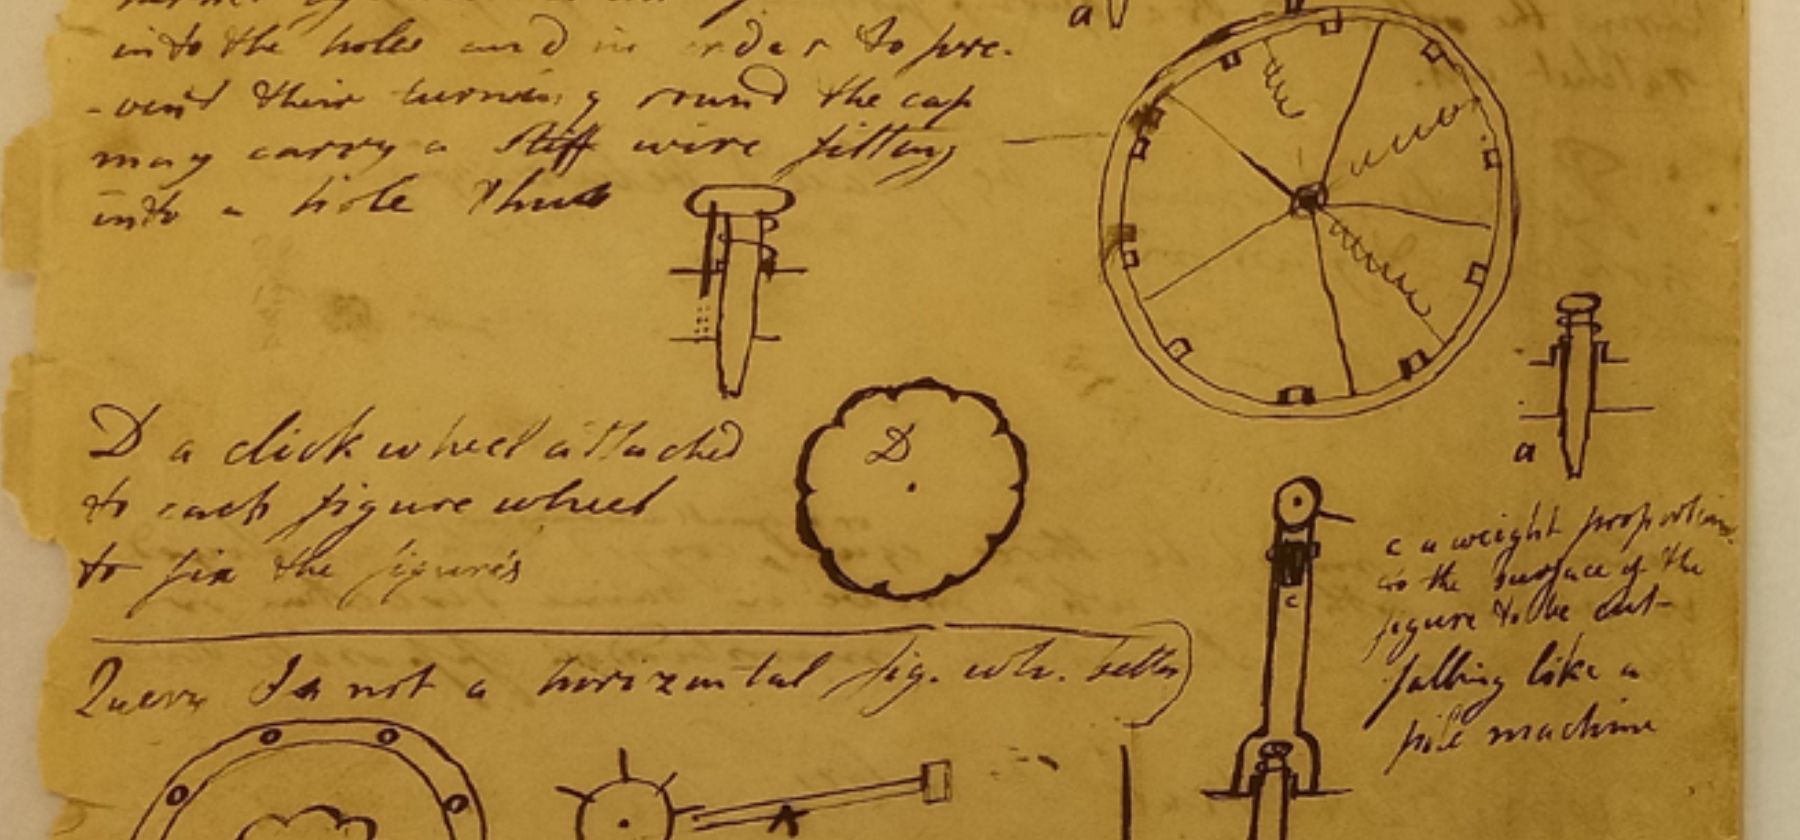 into the holes and in order to pre-
-vent their turning round the cap
may carry a stiff wire fitting
into a hole thus
a
D a click wheel attached
to each figure wheel
to fix the figures
D
a
c a weight proportion
to the surface of the
figure to be cut
falling like a
pile machine
c
Quere Is not a horizontal fig. wh. better
A